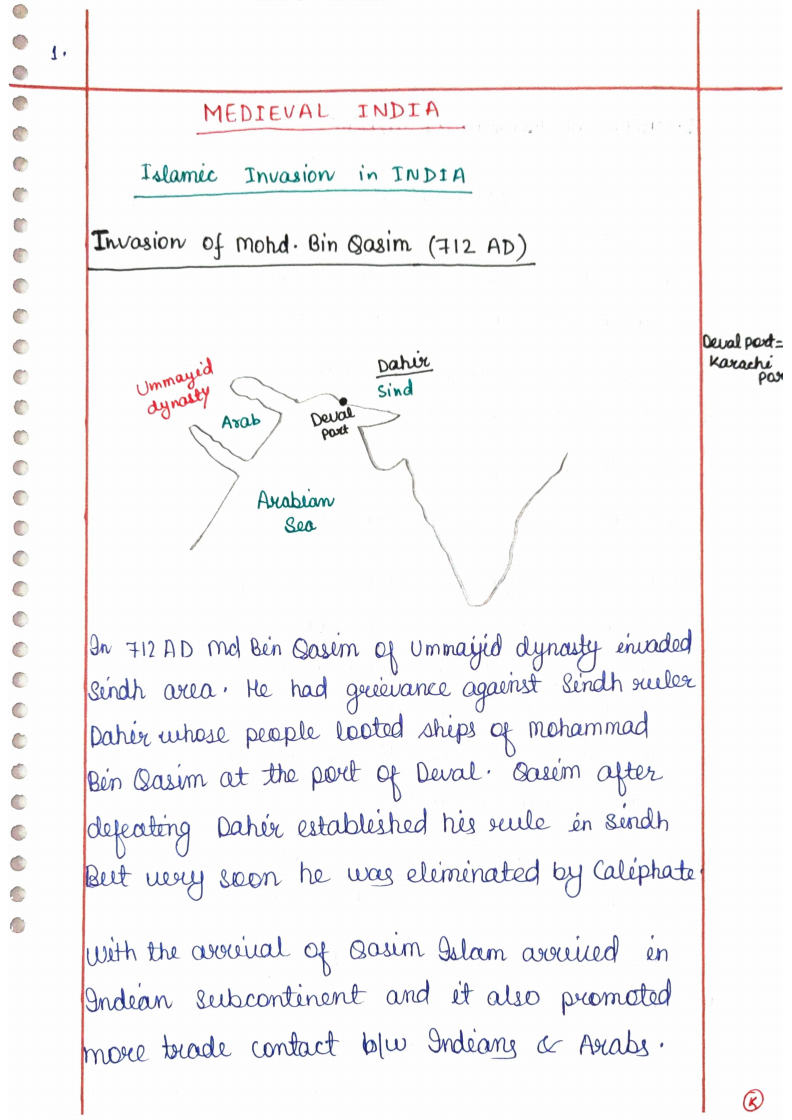 1.
MEDIEVAL INDIA
Islamic Invasion in INDIA
Invasion of Mohd. Bin Qasim (712 AD)
Deval port =
Karachi
por
Ummayid
dynasty
Arab
Dahir
Sind
Deval
port
Arabian
Sea
In 712 AD Md Bin Qasim of Ummayid dynasty invaded
Sindh area. He had grievance against Sindh ruler
Dahir whose people looted ships of Mohammad
Bin Qasim at the port of Deval. Qasim after
defeating Dahir established his rule in Sindh
But very soon he was eliminated by Caliphate.
With the arrival of Qasim Islam arrived in
Indian Subcontinent and it also promoted
more trade contact b/w Indians & Arabs.
K